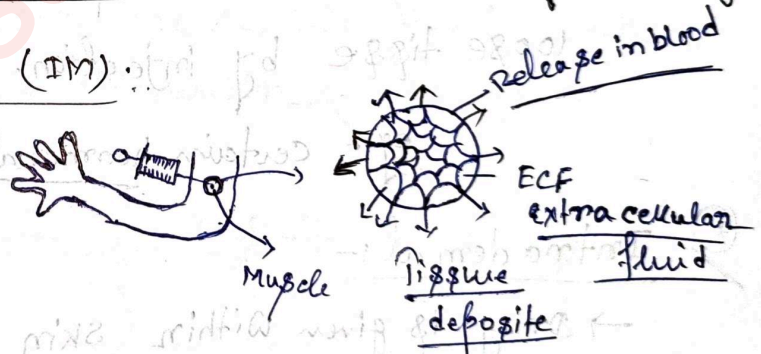 (IM).
Release in blood
ECF
Extracellular
fluid
Muscle
Tissue
deposite